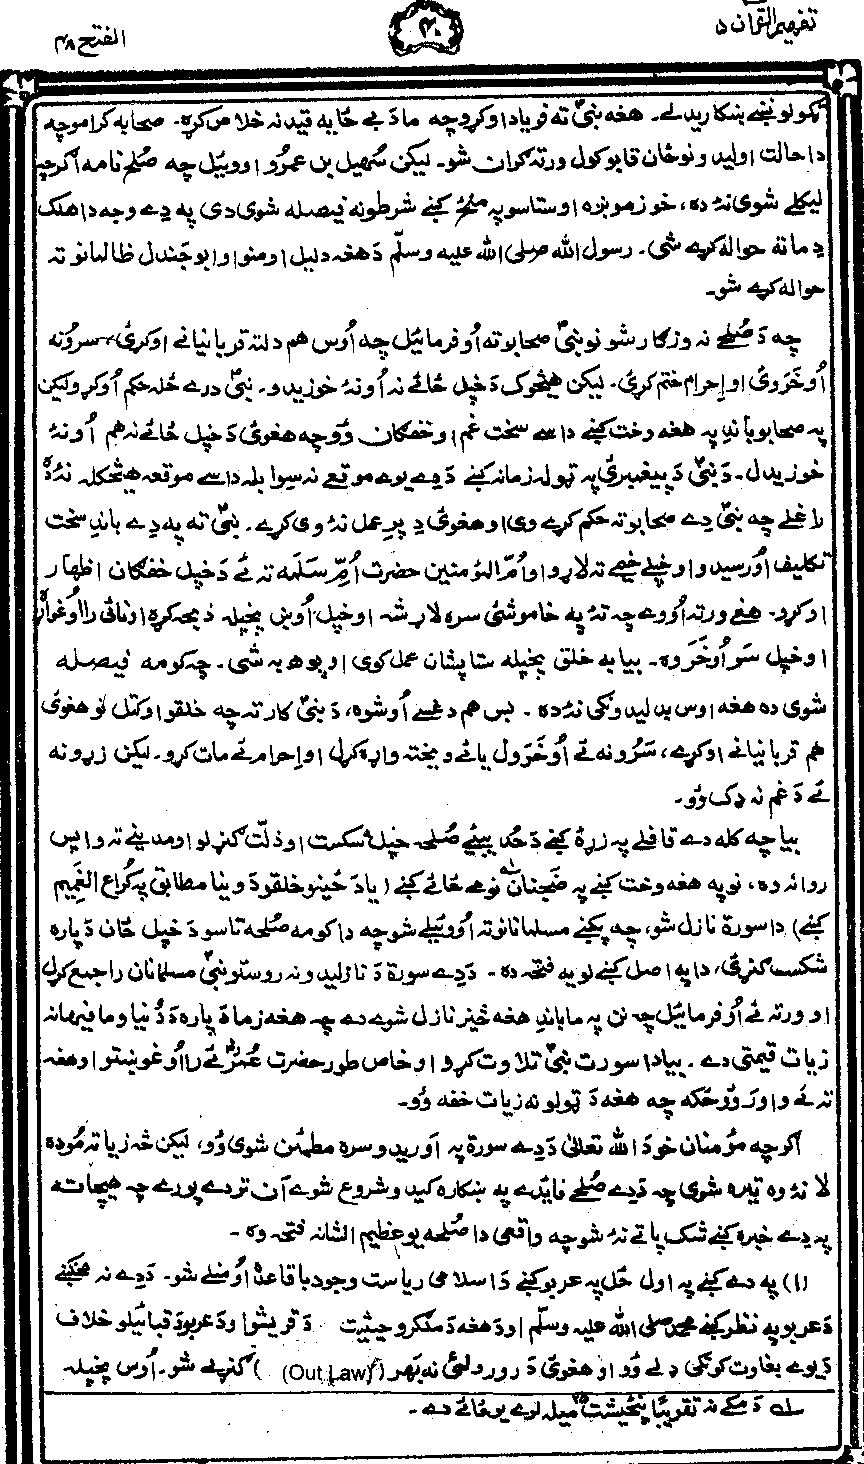 تفهيم القرآن ۵
۴۰
الفتح ۴۸
ټکولو نښې ښکاريدلے۔ هغه نبیؐ ته فرياد اوکړو چه ما دَ بے ځايه قيد نه خلاص کړه۔ صحابه کرامو چه
دا حالت اوليد و نو ځان قابو کول ورته ګران شو۔ ليکن سُهيل بن عمرو اووئيل چه صُلح نامه اګرچه
ليکلے شوی نۀ ده، خو زمونږه او ستاسو په مينځ کښے شرطونه فيصله شوی دی په دے وجه دا هلک
دِ ما ته حواله کړے شی۔ رسول الله صلی الله عليه وسلّم دَ هغه دليل اومنو او ابوجندل ظالمانو ته
حواله کړے شو۔
چه دَ صُلحے نه وزګار شو نو نبیؐ صحابو ته اُوفرمائيل چه اُوس هم دلته قربانیانے اوکړئ، سرُونه
اُوخروئ او اِحرام ختم کړئ۔ ليکن هيڅوک دَ خپل ځائے نه اُونۀ خوزيدو۔ نبیؐ درے ځله حکم اُوکړو ليکن
په صحابو باندِ په هغه وخت کښے داسے سخت غم او خفګان وُو چه هغوئ دَ خپل ځائے نه هم اُونۀ
خوزيدل۔ دَ نبیؐ دَ پيغمبرئ په ټوله زمانه کښے دَ دِے يوے موقعے نه سِوا بله داسے موقعه هيڅکله نۀ ده
راغلے چه نبیؐ دِے صحابو ته حکم کړے وی او هغوئ دِ پرِ عمل نۀ وی کړے۔ نبیؐ ته په دے باندِ سخت
تکليف اُورسيدو او خپلے خيمے ته لاړو او اُمّ المؤمنين حضرت اُمِّ سَلَمه ته ئے دَ خپل خفګان اظهار
اوکړو۔ هغے ورته اُووے چه تۀ په خاموشئ سره لاړ شه او خپل اُوښ پخپله ذبحه کړه او نائی رااُوغواړه
او خپل سَر اُوخَرَوه۔ بيا به خلق پخپله ستا پشان عمل کوی او پوهـ به شی۔ چه کومه فيصله
شوی ده هغه اوس بدليدونکی نۀ ده۔ بس هم دغسے اُوشوه، دَ نبیؐ کار ته چه خلقو اوکتل نو هغوئ
هم قربانیانے اوکړے، سَرُونه ئے اُوخَرَول يائے ويښته واړۀ کړل او اِحرام ئے مات کړو۔ ليکن زړونه
ئے دَ غم نه ډک وُو۔
بيا چه کله دے قافلے په زړۀ کښے دَ حُديبيے صُلحه خپل شکست او ذلّت ګنړلو او مدينے ته واپس
روانه وه، نو په هغه وخت کښے په ضَجنان ۱؂ نومے ځائے کښے (يا دَ ځينو خلقو دَ وينا مطابق په کُراع الغَميم
کښے) دا سورة نازل شو، چه پکښے مسلمانانو ته اُووئيلے شو چه دا کومه صُلحه تاسو دَ خپل ځان دَ پاره
شکست ګنړئ، دا په اصل کښے لويه فتحه ده۔ دَ دِے سورة دَ نازليدو نه روستو نبیؐ مسلمانان راجمع کړل
او ورته ئے اُوفرمائيل چه نن په ما باندِ هغه څيز نازل شوے دے چه هغه زما دَ پاره دَ دُنيا وما فيها نه
زيات قيمتی دے۔ بيا دا سورت نبیؐ تلاوت کړو او خاص طور حضرت عُمرؓ ئے رااُوغوښتو او هغه
ته ئے واورَوُو ځکه چه هغه دَ ټولو نه زيات خفه وُو۔
اګرچه مؤمنان خو دَ الله تعالیٰ دَ دِے سورة په اَوريدو سره مطمئن شوی وُو، ليکن څه زياته مُوده
لا نۀ وه تيره شوی چه دَ دِے صُلحے فايدے په ښکاره کيدو شروع شوے آن تر دے پورے چه هيچا ته
په دے خبره کښے شک پاتے نۀ شو چه واقعی دا صُلحه يو عظيم الشانه فتحه وه۔
(۱) په دے کښے په اول ځل په عربو کښے دَ اسلامی رياست وجود باقاعدۀ اُومنلے شو۔ دَ دِے نه مخکښے
دَ عربو په نظر کښے محمد صلی الله عليه وسلّم او دَ هغه دَ ملګرو حيثيت دَ قريشو او دَ عربو دَ قبائيلو خلاف
دَ يوے بغاوت کونکی ډلے وُو او هغوئ دَ رورولئ نه بَهر (Out Law) ګنړلے شو۔ اُوس پخپله
۱؂ دَ مکے نه تقريبًا پنځيشت ۲۵ ميله لرے يو ځائے دے۔